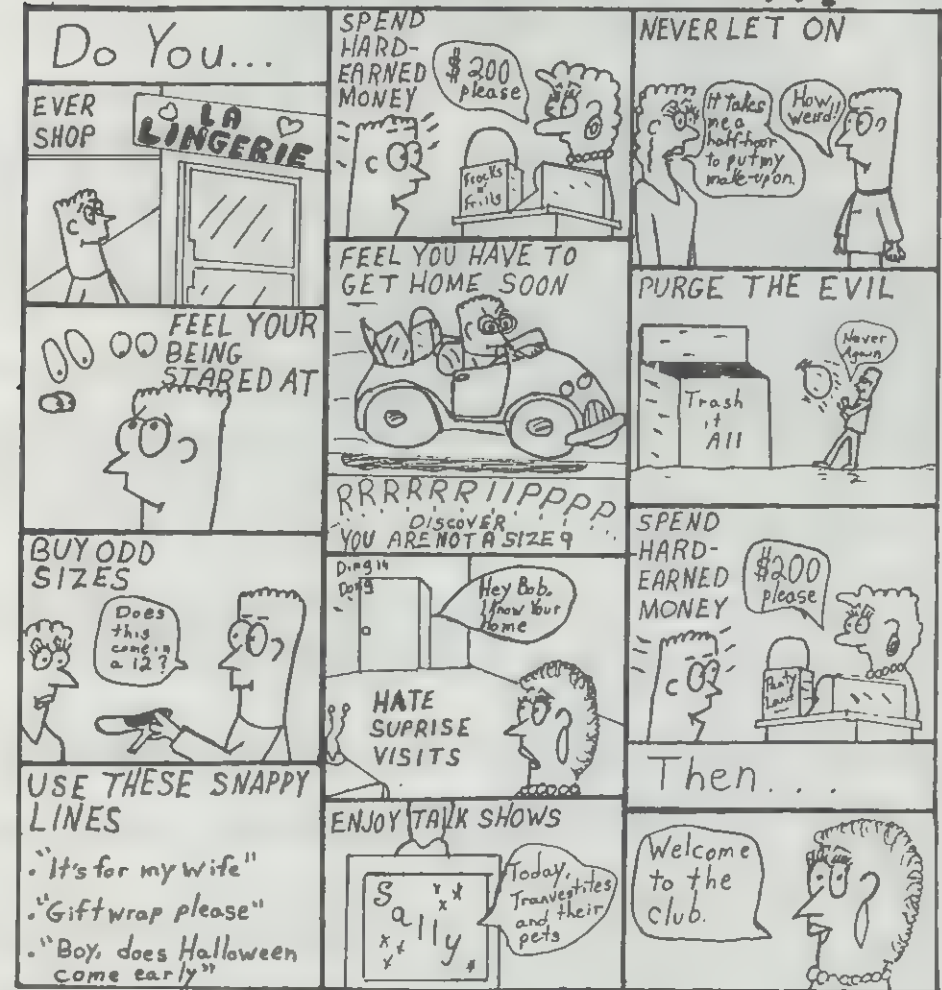 Do You...
EVER
SHOP
LA
LINGERIE
FEEL YOUR
BEING
STARED AT
BUY ODD
SIZES
Does
this
come in
a 12?
USE THESE SNAPPY
LINES
."It's for my wife"
."Gift wrap please"
."Boy, does Halloween
come early"
SPEND
HARD-
EARNED
MONEY
$200
please
Frocks
n
Frills
FEEL YOU HAVE TO
GET HOME SOON
RRRRRRIIPPPPP
DISCOVER
YOU ARE NOT A SIZE 9
Ding
Dong
Hey Bob,
I know Your
home
HATE
SUPRISE
VISITS
ENJOY TALK SHOWS
Sally
Today,
Tranvestites
and their
pets
NEVER LET ON
It takes
me a
half-hoor
to put my
make-up on.
How
weird!!
PURGE THE EVIL
Never
Again
Trash
it
All
SPEND
HARD-
EARNED
MONEY
$200
please
Panty
Land
Then....
Welcome
to the
club.